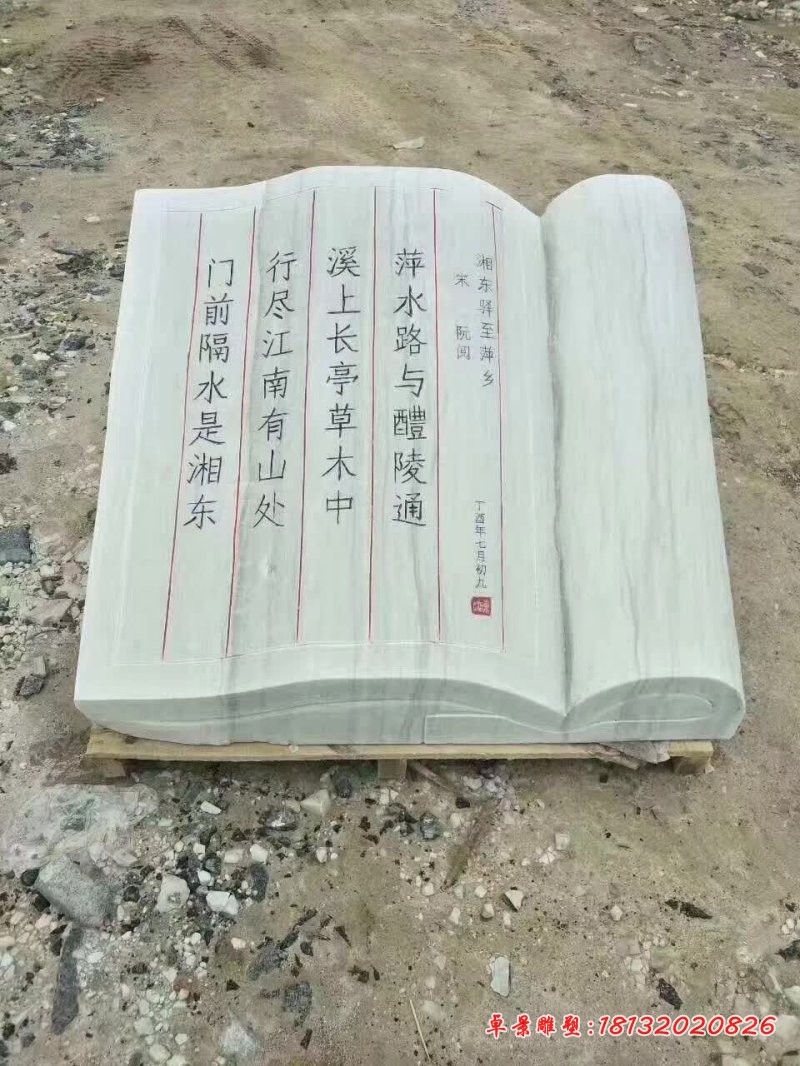 湘东驿至萍乡
宋 阮阅
丁酉年七月初九
萍水路与醴陵通
溪上长亭草木中
行尽江南有山处
门前隔水是湘东
卓景雕塑:18132020826